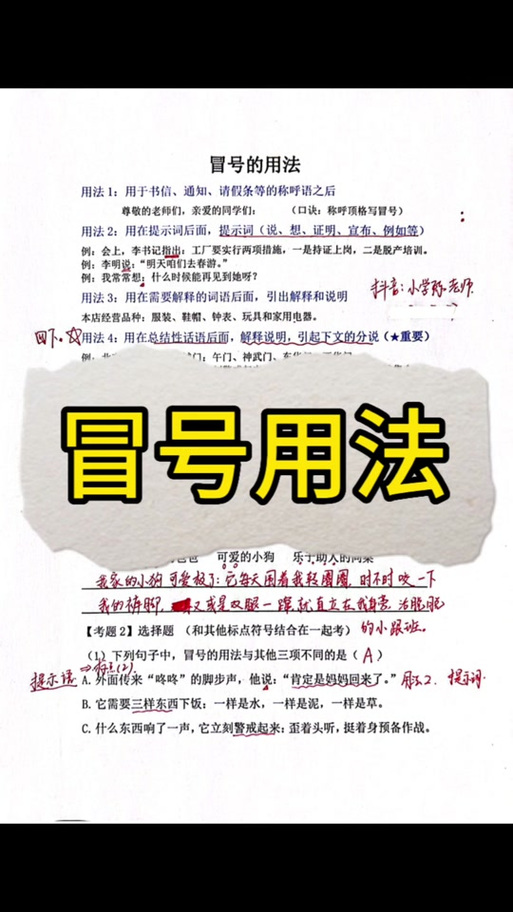 冒号的用法
用法1：用于书信、通知、请假条等的称呼语之后
尊敬的老师们，亲爱的同学们： （口诀：称呼顶格写冒号）
用法2：用在提示词后面，提示词（说、想、证明、宣布、例如等）
例：会上，李书记指出：工厂要实行两项措施，一是持证上岗，二是脱产培训。
例：李明说：“明天咱们去春游。”
例：我常常想：什么时候能再见到她呀？
抖音：小学 老师
用法3：用在需要解释的词语后面，引出解释和说明
本店经营品种：服装、鞋帽、钟表、玩具和家用电器。
四下。☆用法4：用在总结性话语后面，解释说明，引起下文的分说（★重要）
门：午门、神武门、
冒号用法
可爱的小狗 乐于助人的同桌
我家的小狗可爱极了：它每天围着我转圈圈，时不时咬一下
我的裤脚，又或是双腿一蹲就直立在我身旁，活脱脱
【考题2】选择题 （和其他标点符号结合在一起考） 的小跟班。
（1）下列句子中，冒号的用法与其他三项不同的是（ A ）
提示语 A. 外面传来“咚咚”的脚步声，他说：“肯定是妈妈回来了。” 用法2. 提示词
B. 它需要三样东西下饭：一样是水，一样是泥，一样是草。
C. 什么东西响了一声，它立刻警戒起来：歪着头听，挺着身预备作战。